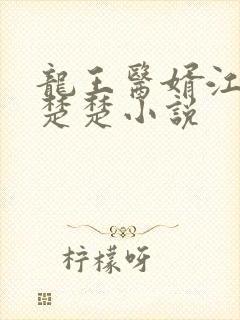 龍王醫婿江
楚楚小説
柠檬呀